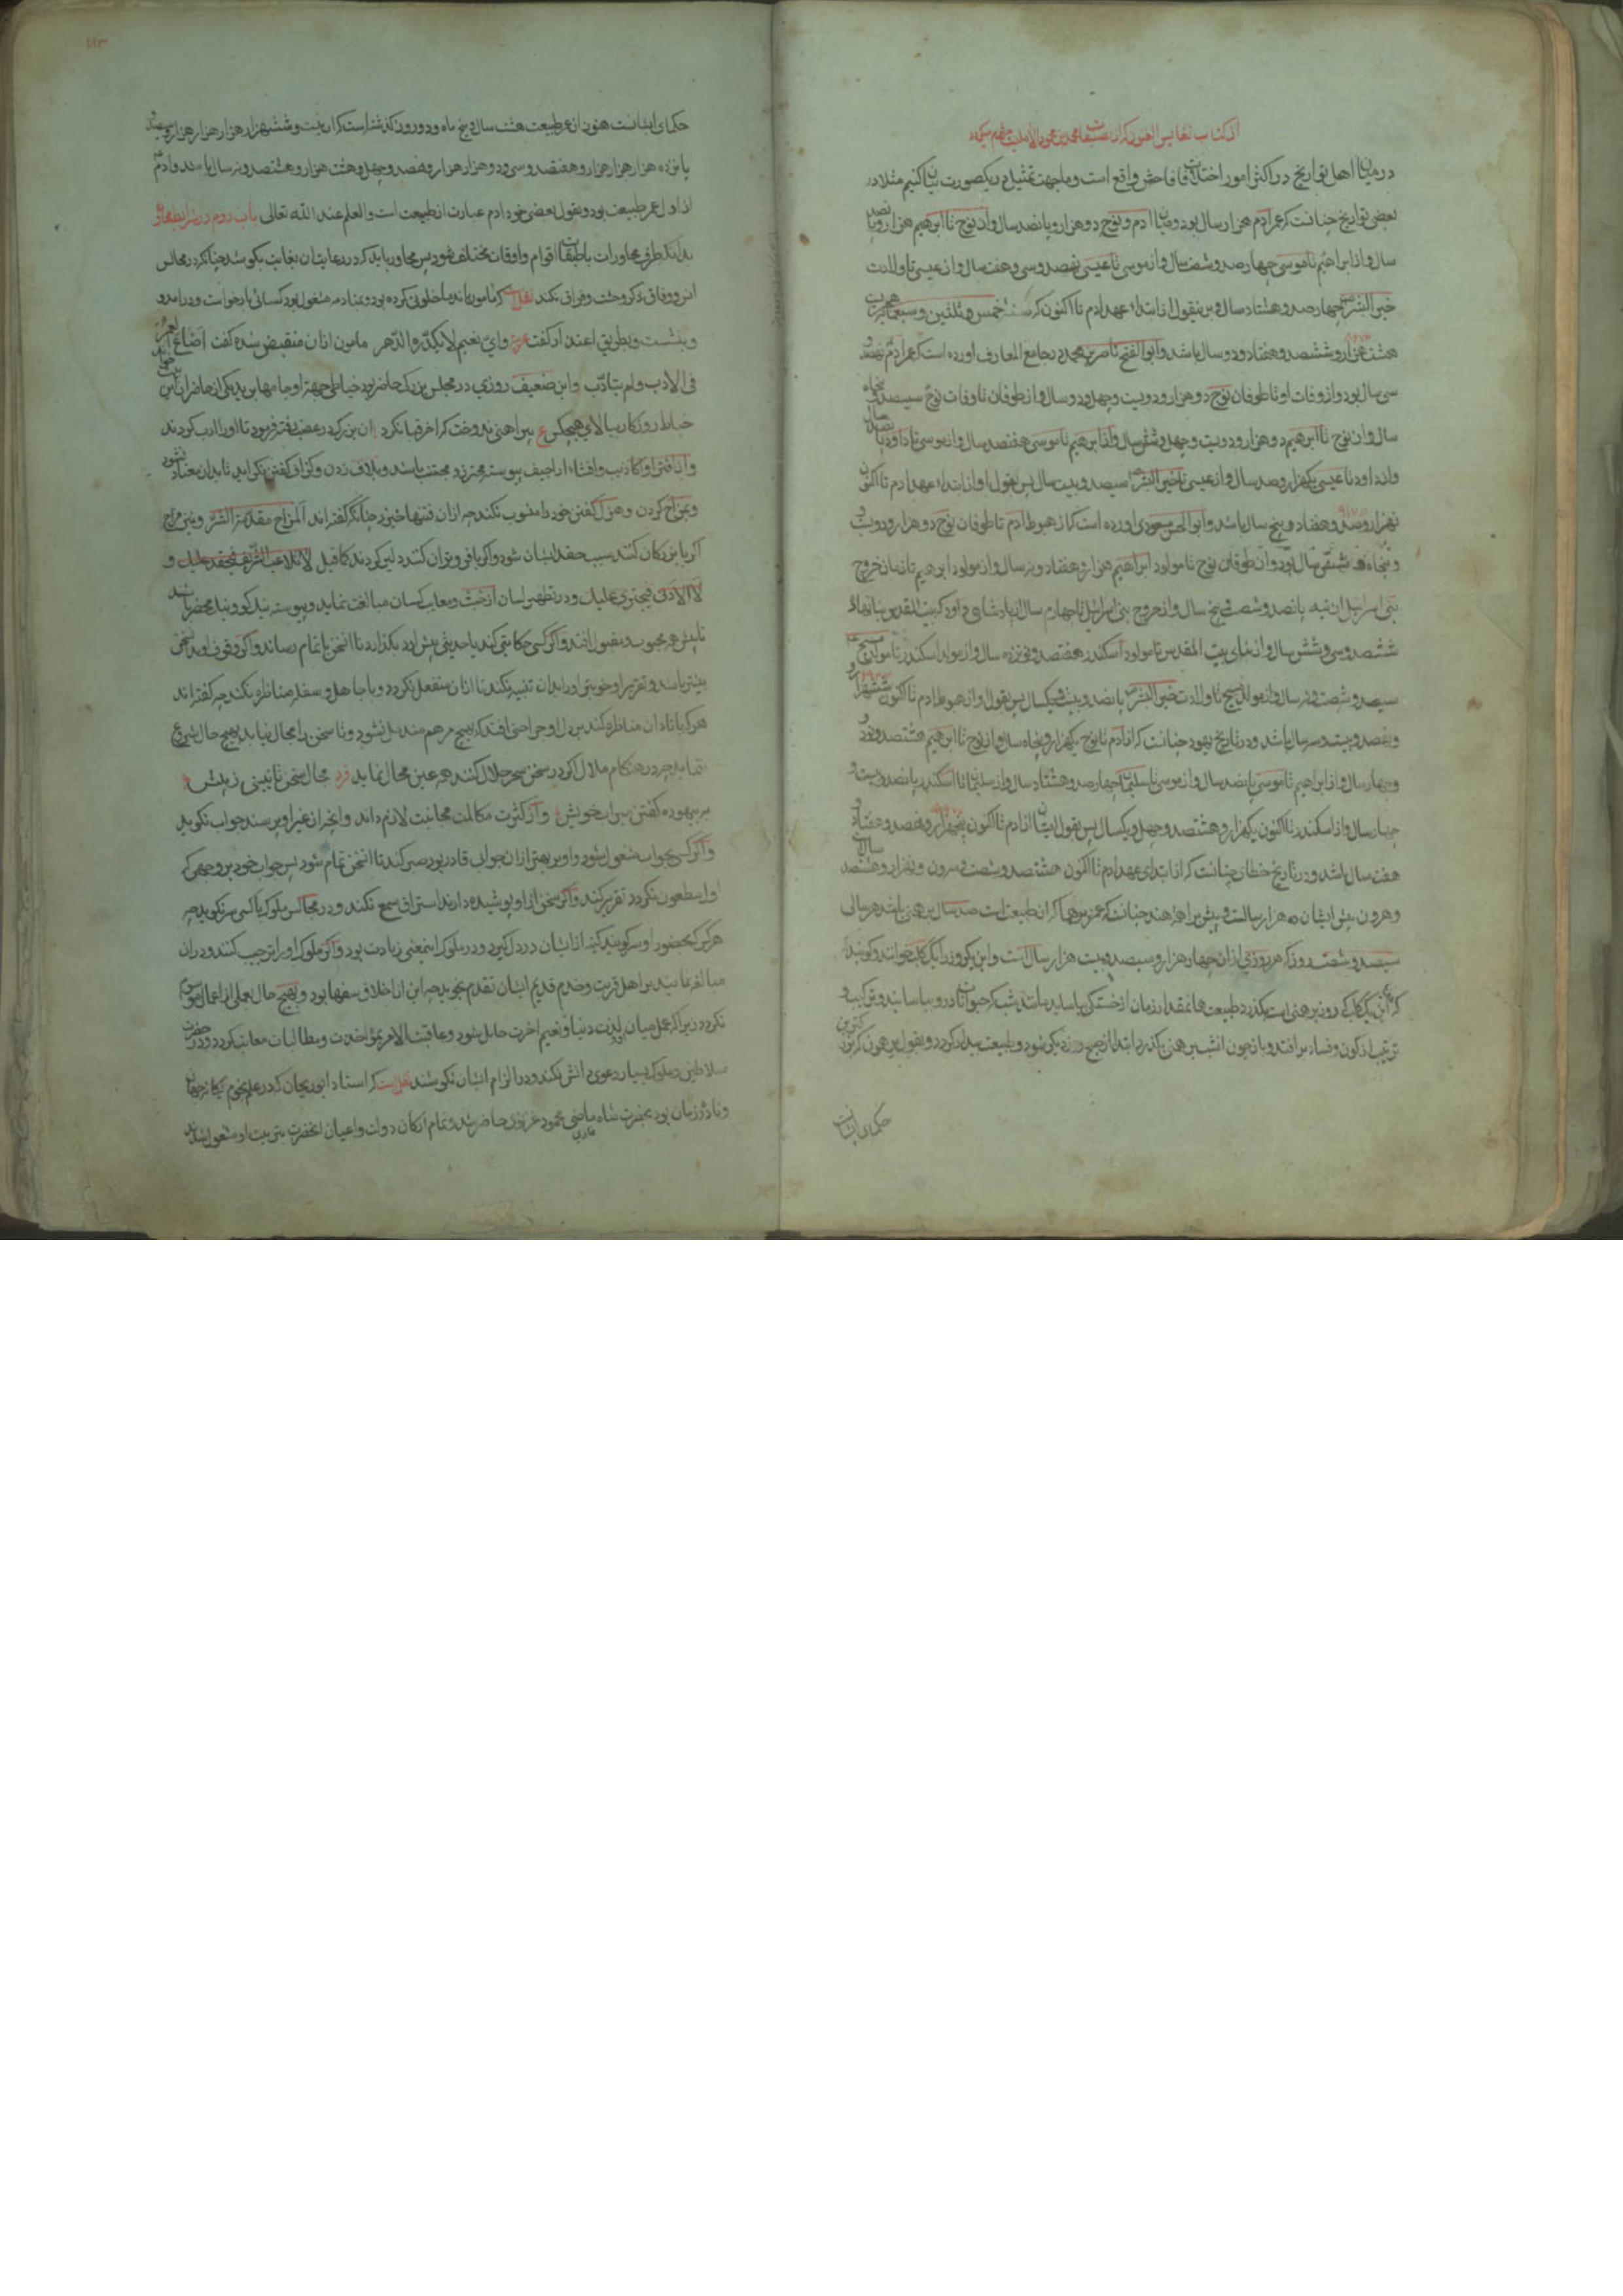 از کتاب نفایس الفنون که از مصنفات محمد بن محمود الاملیست
در میان اهل تواریخ در اکثر امور اختلافات فاحش واقع است و ما جهت تمثیل در یکصورت بیان کنیم مثلا در
بعضی تواریخ چنانست که عمر ادم هزار سال بود و میان ادم و نوح دو هزار و پانصد سال و از نوح تا ابرهیم هزار و پانصد
سال و از ابراهیم تا موسی چهارصد و شصت سال و از موسی تا عیسی نهصد و سی و هفت سال و از عیسی تا ولادت
خیر البشر چهارصد و هشتاد سال و برین قول از ابتداء عهد ادم تا اکنون که سنه خمس و ثلثین و سبعمایه هجریست
هشت هزار و ششصد و هفتاد و دو سال باشد و ابو الفتح ناصر بن محمد در جامع المعارف اورده است که عمر ادم نهصد و
سی سال بود و از وفات او تا طوفان نوح دو هزار و دویست و چهل و دو سال و از طوفان تا وفات نوح سیصد و پنجاه
سال و از نوح تا ابرهیم دو هزار و دویست و چهل و شش سال و از ابرهیم تا موسی هفتصد سال و از موسی تا داود پانصد سال
و از داود تا عیسی یکهزار و صد سال و از عیسی تا خیر البشر سیصد و بیست سال پس بقول او از ابتداء عهد ادم تا اکنون
نهزار و سد و هفتاد و پنج سال باشد و ابو الحسن مسعودی اورده است که از هبوط ادم تا طوفان نوح دو هزار و دویست و
و پنجاه و شش سال بود و از طوفان نوح تا مولود ابراهیم هزار و هفتاد و نه سال و از مولود ابرهیم تا زمان خروج
بنی اسرایل از تیه پانصد و شصت و پنج سال و از خروج بنی اسرایل تا چهارم سال از پادشاهی داود که بیت المقدس بنا نهاد
ششصد و سی و شش سال و از بنای بیت المقدس تا مولود اسکندر هفتصد و نوزده سال و از مولد اسکندر تا مولد مسیح
سیصد و شصت و نه سال و از مولد مسیح تا ولادت خیر البشر پانصد و بیست و یکسال پس بقول او از هبوط ادم تا اکنون ششهزار و
و نهصد و بیست و سه سال باشد و در تاریخ یهود چنانست که از ادم تا نوح یکهزار و پنجاه سال و از نوح تا ابرهیم هشتصد و نود و
و چهار سال و از ابراهیم تا موسی پانصد سال و از موسی تا سلیمان چهارصد و هشتاد سال و از سلیمان تا اسکندر پانصد و بیست و
چهار سال و از اسکندر تا اکنون یکهزار و هشتصد و چهل و یکسال پس بقول ایشان از ادم تا اکنون پنجهزار و نهصد و هفتاد و
هفت سال باشد و در تاریخ خطا چنانست که از ابتدای عهد ادم تا اکنون هشتصد و شصت و سه ون و نهزار و هشتصد سال
و هر ون پیش ایشان ده هزار سالست و پیش براهمه هند چنانست که عمر برهما که از طبیعت است صد سال برهمنی باشد هر سالی
سیصد و شصت روز که هر روزی از ان چهار هزار و سیصد و بیست هزار سال است و این یک روز را یک کلپ خوانند و گویند
که چون یک کلپ که روز برهمنی است بگذرد طبیعت هم بمقدار زمان از خستگی بیاساید مانند شب که حیوانات در وی بیاسایند و ترکیب و
ترتیب از کون و فساد برافتد و باز چون انشب برهمنی بگذرد ابتدا از صبح روز دیگر شود و طبیعت بیدار گردد و بقول برهمن که بزرگترین
حکمای ایشانست
حکمای ایشانست هنوز از عمر طبیعت هشت سال و پنج ماه و دو روز گذشته است که از بیست و ششهزار هزار هزار هزار و سیصد و
پانزده هزار هزار هزار و هفتصد و سی و دو هزار هزار و نهصد و چهل و هشت هزار و هشتصد و نه سال باشد و ادم
از اول عمر طبیعت بود و بقول بعضی خود ادم عبارت از طبیعت است و العلم عند الله تعالی باب دوم در شرایط محاورات
بدانکه طرف محاورات باطبقات اقوام و اوقات مختلف شود پس محاور باید که در رعایت ان بغایت بکوشد چنانکه در مجالس
انس و وفاق ذکر وحشت و فراق نکند نقلست که مامون با ندما خلوتی کرده بود و بمنادمه مشغول بود کسائی بار خواست و درامد و
و بنشست و بطریق اعتذار گفت و ای نعیم لا یکدره الدهر مامون از ان منقبض شده گفت اضاع العمر
فی الادب و لم یتادب و این ضعیف روزی در مجلس بزرگی حاضر بود خیاطی جهة او جامها می برید یکی از حاضران این بیت خواند
خیاط روزگار ببالای هیچکس ع پیراهنی ندوخت که اخر قبا نکرد ان بزرگ در غضب رفته فرمود تا او را ادب کردند
و از افترا و اکاذیب و افشاء اراجیف پیوسته محترز و مجتنب باشد و بلاف زدن و گزاف گفتن نگراید تا بدان معتاد نشود
و بمزاح کردن و هزل گفتن خود را منسوب نکند چه از ان فتنها خیزد چنانکه گفته اند المزاح مقدمة الشر و چون مزاح
اگر با بزرگان کنند سبب حقد ایشان شود و اگر با فروتران کنند دلیر گردند کما قیل لا تلاعب الشریف فیحقد علیک و
لا الادنی فیجتری علیک و در تطهیر لسان از خبث و معایب کسان مبالغت نماید و پیوسته نیکو گو و نیک محضر باشد
تا پیش همه محبوب و مقبول افتد و اگر کسی حکایتی کند یا حدیثی پیش اورد بگذارد تا انسخن باتمام رساند و اگر وقوف او بدان سخن
بیشتر باشد و تقریر او خوبتر او را بدان تنبیه نکند تا از ان منفعل نگردد و با جاهل و سفله مناظره نکند چه گفته اند
هر که با نادان مناظره کند بر دل او جراحتی افتد که بهیچ مرهم مندمل نشود و تا سخن را مجال نیابد بهیچ حال شروع
ننماید چه در هنگام ملال اگر در سخن سحر حلال کنند همه عین محال نماید فرد مجال سخن تا نبینی ز پیش
به بیهوده گفتن مبر اب خویش و از کثرت مکالمت مجانبت لازم داند و انچه از غیر او پرسند جواب نگوید
و اگر کسی بجواب مشغول شود و او بر بهتر از ان جوابی قادر بود صبر کند تا انسخن تمام شود پس جواب خود بر وجهی که
او را مطعون نگردد تقریر کند و اگر سخنی از او پوشیده دارند استراق سمع نکند و در مجالس ملوک با کسی سر نگوید چه
هر کس که بحضور او سر گویند کینه از ایشان در دل گیرد و در ملوک اینمعنی زیادت بود و اگر ملوک او را ترحیب کنند و در ان
مبالغه نمایند بر اهل قربت و خدم قدیم ایشان تقدم نجوید چه این از اخلاق سفها بود و بهیچ حال بعملی از اعمال
نگردد زیرا که عمل میان او و لذت دنیا و نعیم اخرت حایل شود و عاقبت الامر بمؤاخذت و مطالبات معاتب گردد و در حضرت
سلاطین و ملوک بسیار دعوی دانش نکند و در الزام ایشان نکوشد نقلست که استاد ابوریحان که در علم نجوم یگانه جهان
و نادره زمان بود بحضرت شاه ماضی محمود غزنوی حاضر شد و تمام ارکان دولت و اعیان انحضرت بتربیت او مشغول شدند